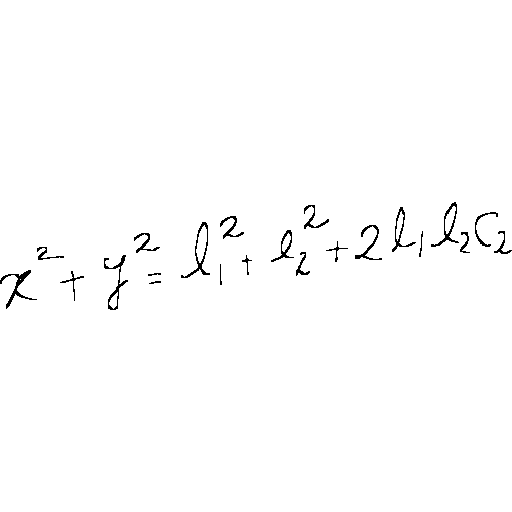 x² + y² = l₁² + l₂² + 2 l₁ l₂ c₂